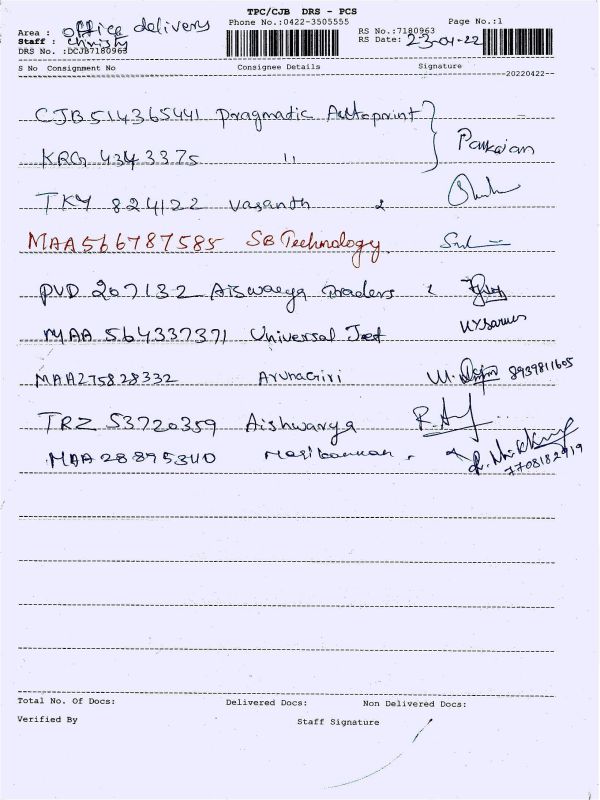 TPC/CJB DRS - PCS
Area : office delivery Phone No.:0422-3505555 Page No.:1
Staff : Christy RS No.:7180963
DRS No. :DCJB7180963 RS Date: 23-04-22
S No Consignment No Consignee Details Signature
20220422
CJB514365441 Pragmatic Autoprint
KRG 4343375 " Pankajam
TKY 824122 Vasanth 2
MAA566787585 SB Technology
PVD 207132 Aiswarya Traders
MAA 564337371 Universal
MAA275828332 Arunagiri 8939811605
TRZ 53720359 Aishwarya
MAA 288953110 Marikannan 7708182919
Total No. Of Docs: Delivered Docs: Non Delivered Docs:
Verified By Staff Signature